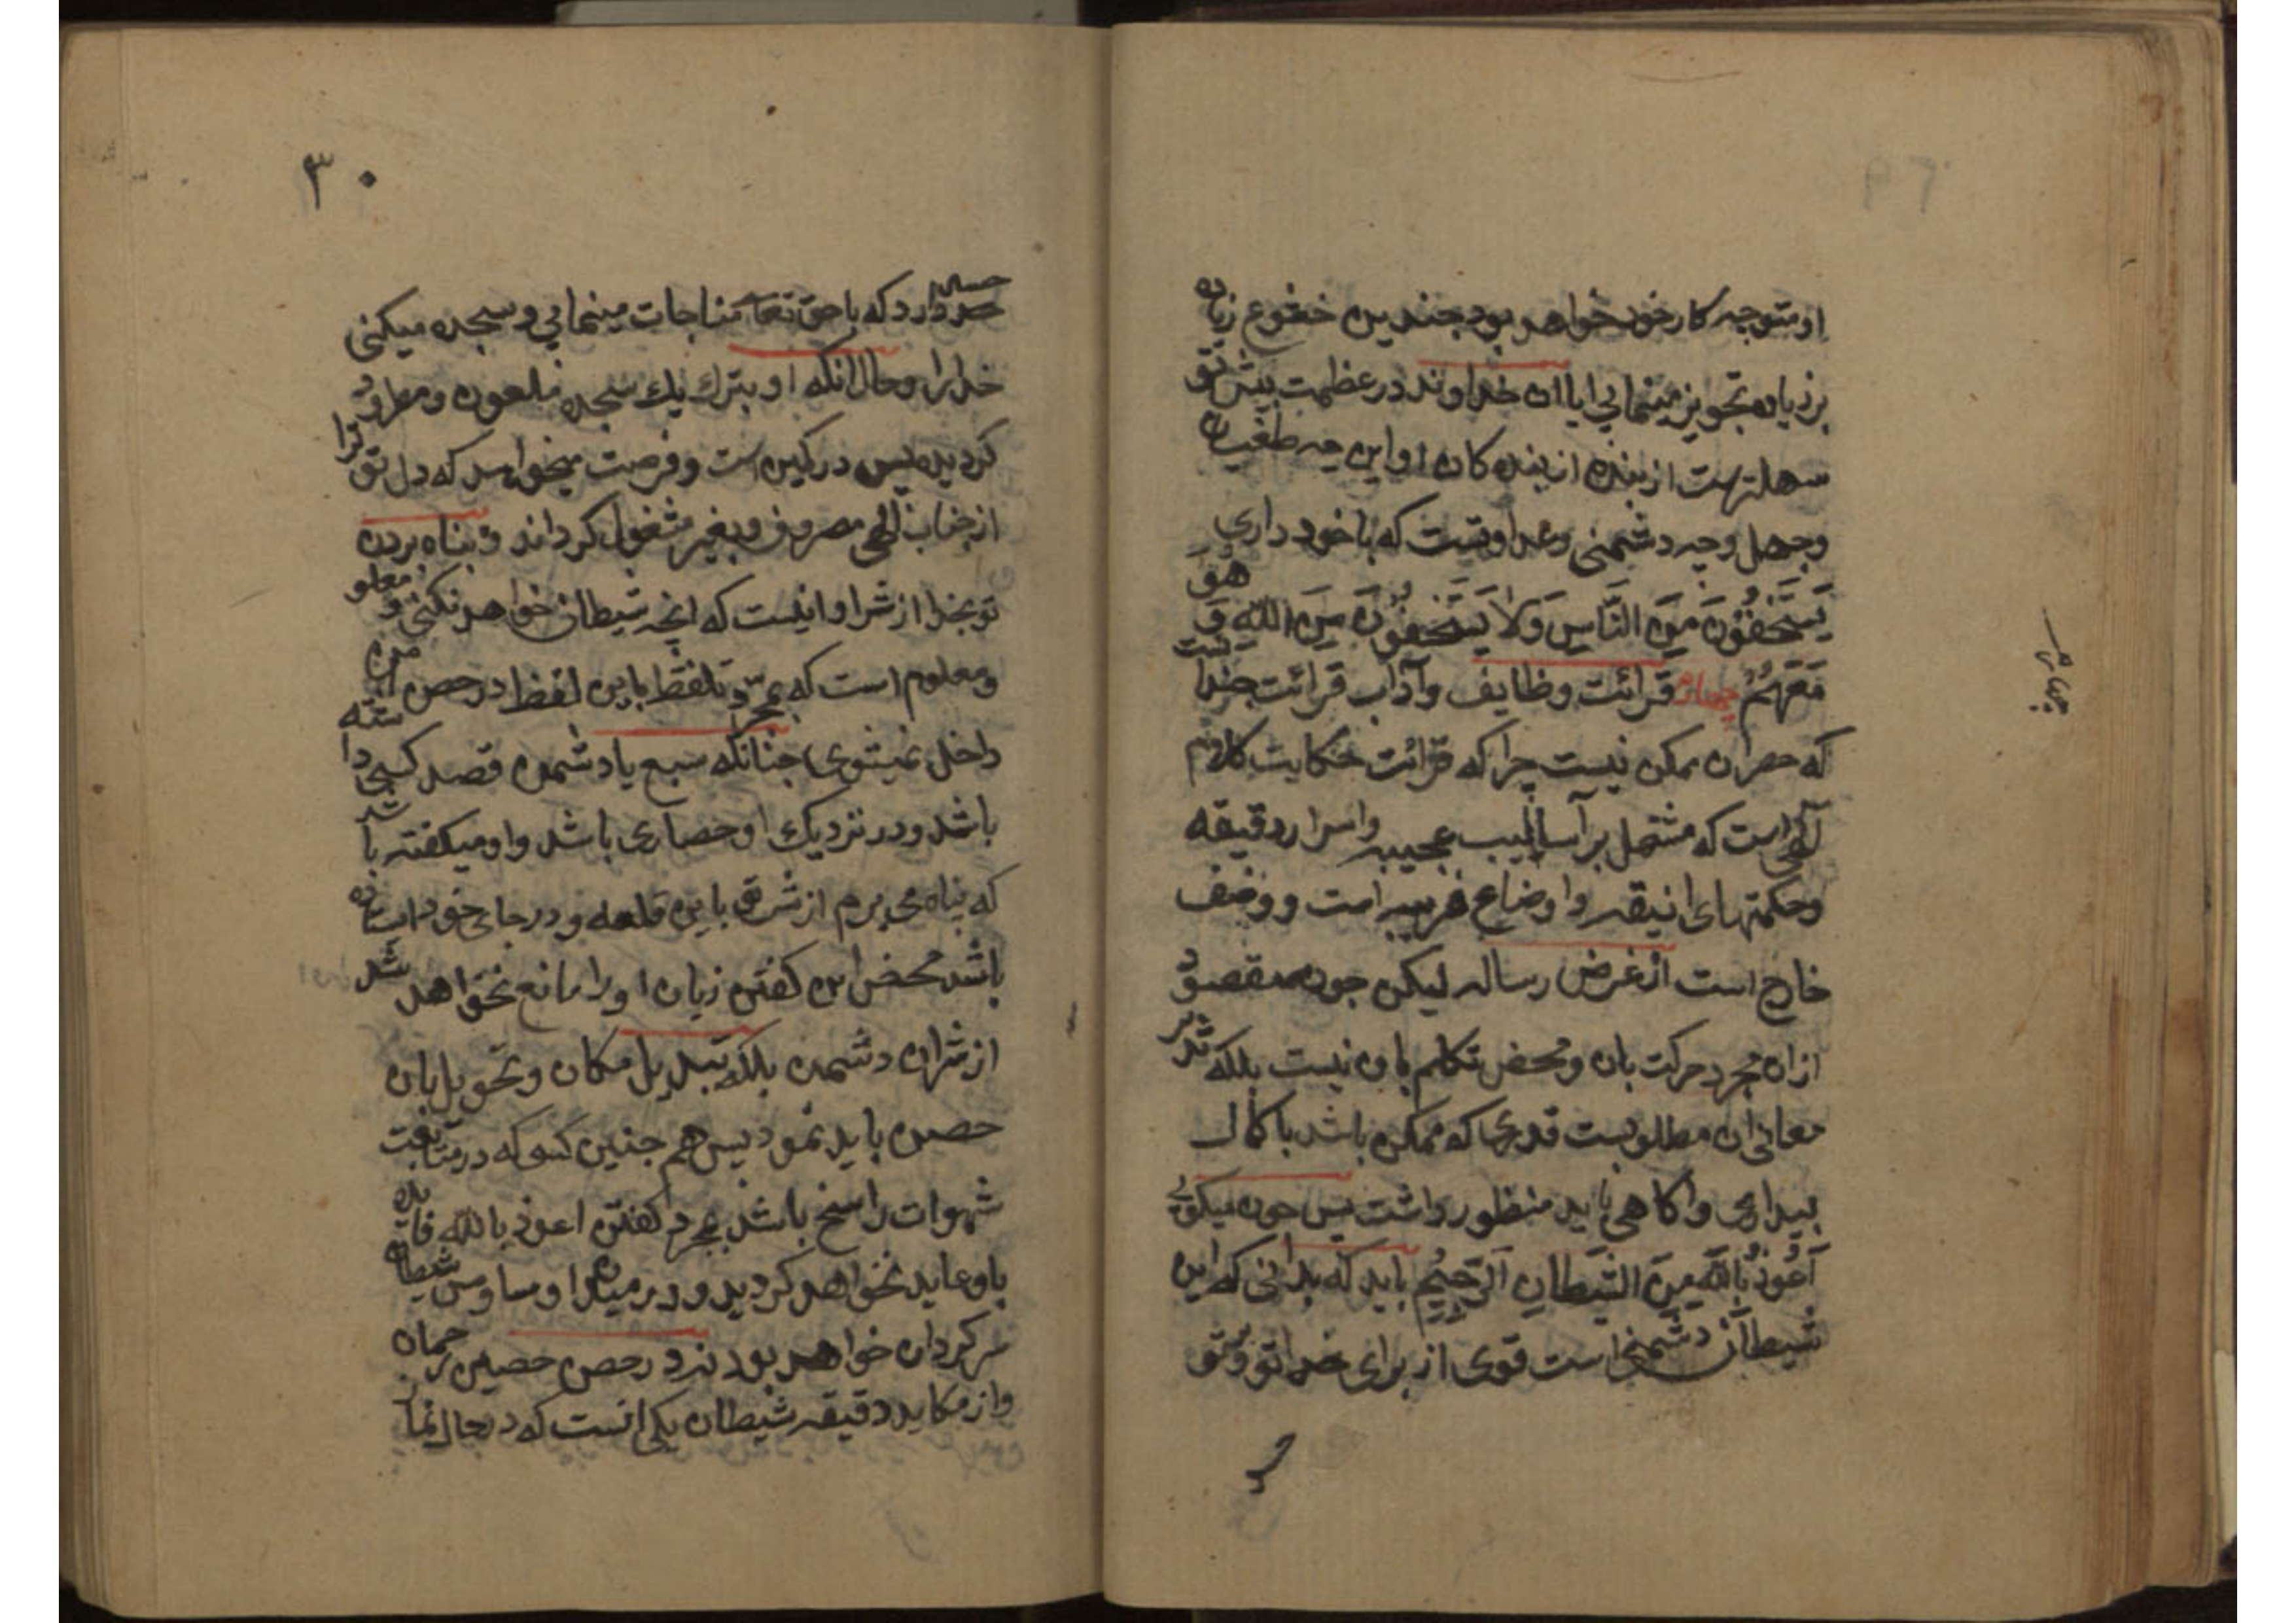 او متوجه کار خود خواهد بود چندین خضوع زیاده
بر زیاده تجویز مینمایی ایا ان خداوند در عظمت پیش تو
سهلترست از بنده از بنده کان او این چه طغیان
وجهل وچه دشمنی وعداوتست که با خود داری
یَسْتَخْفُوْنَ مِنَ النَّاسِ وَلاَ یَسْتَخْفُوْنَ مِنَ اللّهِ وَ هُوَ
مَعَهُمْ چهارم قرائت وظایف وآداب قرائت چندا نست
که حصر ان ممکن نیست چرا که قرائت حکایت کلام
آلهی است که مشتمل بر آسالیب عجیبه واسرار دقیقه
وحکمتهای انیقه واوضاع غریبه است و وصف
خارج است از غرض رساله لیکن چون مقصود
از ان مجرد حرکت بان ومحض تکلم بان نیست بلکه تدبر
معانی ان مطلوبست قدری که ممکن باشد با کمال
بیداری واکاهی باید منظور داشت پس چون میکویی
اَعُوْذُ بِاللّهِ مِنَ الشَّیْطَانِ الرَّجِیْمِ باید که بدانی که این
شیطان دشمنی است قوی از برای خدا تو و تو
چهارم
۳۰
حسد دارد که با حق تعا مناجات مینمایی و سجده میکنی
خدا را وحال انکه او بترك یك سجده ملعون و مطرود
کردیده پس در کمین است و فرصت میخواهد که دل تو ترا
از جناب الهی مصروف وبغیر مشغول کرداند و پناه بردن
تو بخدا از شر او انیست که انچه شیطان خواهد نکنی و معلو
ومعلوم است که بمجرّد تلفظ باین لفظ در حصن امن
داخل نمیشوی چنانکه سبع یا دشمن قصد کسی دا شته
باشد ودر نزدیك او حصاری باشد واو میکفته با شد
که پناه می برم از شر تو باین قلعه و در جای خود استاده
باشد محض این کفتن زبان او را مانع نخواهد شد
از شر ان دشمن بلکه تبدیل مکان و تحویل بان
حصن باید نمود پس هم چنین کسی که در متابعت
شهوات راسخ باشد بمجرد کفتن اعوذ بالله فایده
باو عاید نخواهد کردید و در میدان وساوس شیطان
سرکردان خواهد بود نه در حصن حصین رحمان
واز مکاید دقیقه شیطان یکی انست که در حال نما